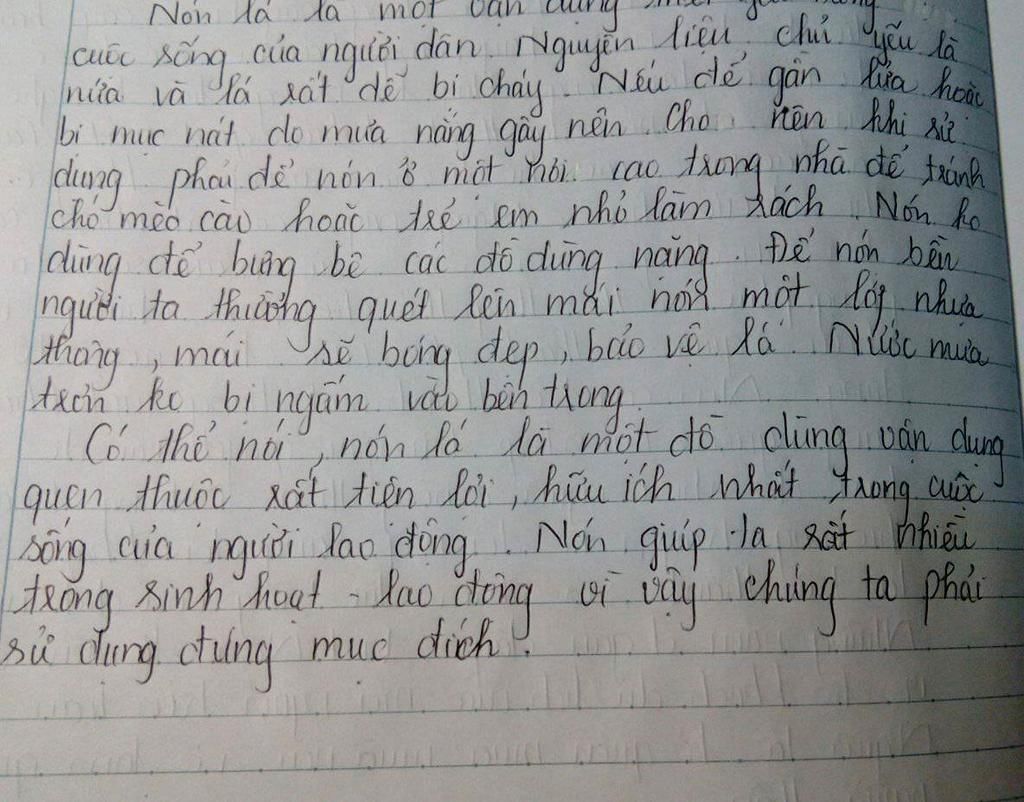 Nón lá là một vận dụng
cuộc sống của người dân. Nguyên liệu chủ yếu là
nứa và lá rất dễ bị cháy. Nếu để gần lửa hoặc
bị mục nát do mưa nắng gây nên. Cho nên khi sử
dụng phải để nón ở một nơi cao trong nhà để tránh
chó mèo cào hoặc trẻ em nhỏ làm rách. Nón ko
dùng để bưng bê các đồ dùng nặng. Để nón bền
người ta thường quét lên mái nón một lớp nhựa
thông, mái sẽ bóng đẹp, bảo vệ lá. Nước mưa
trơn ko bị ngấm vào bên trong.
Có thể nói, nón lá là một đồ dùng vận dụng
quen thuộc rất tiện lợi, hữu ích nhất trong cuộc
sống của người lao động. Nón giúp ta rất nhiều
trong sinh hoạt - lao động vì vậy chúng ta phải
sử dụng đúng mục đích.